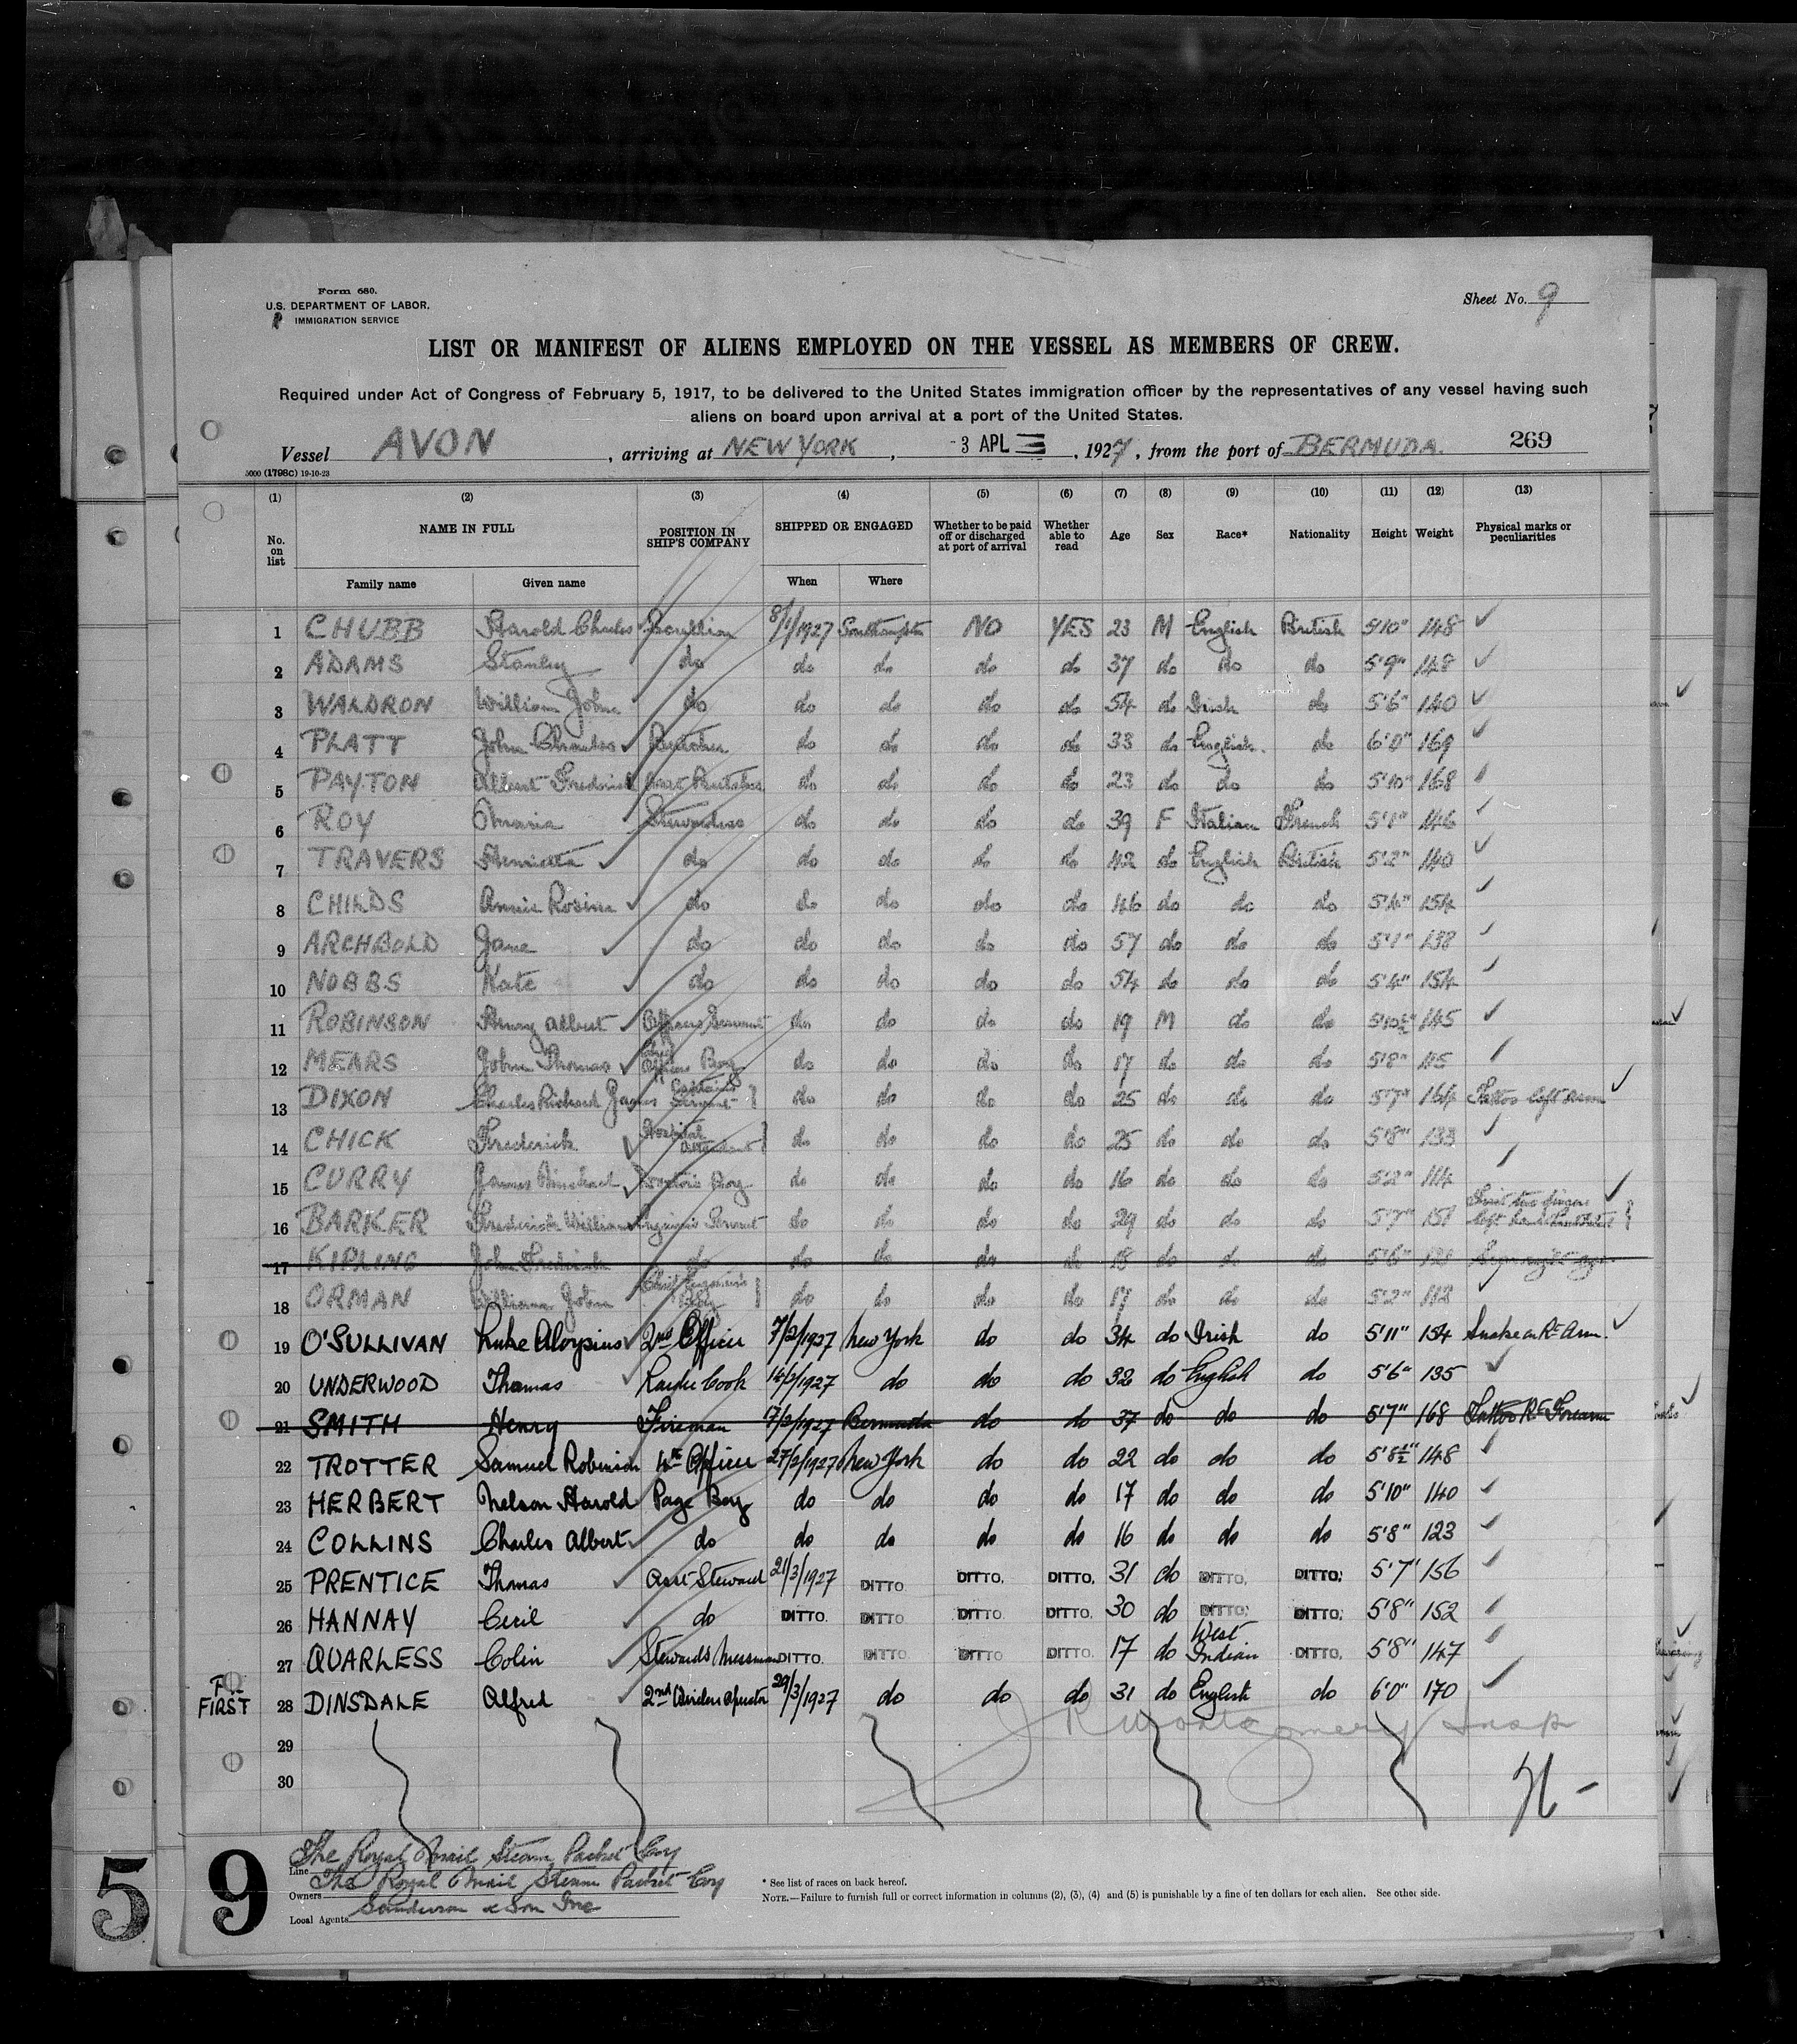 Form 680.
U.S. DEPARTMENT OF LABOR,
IMMIGRATION SERVICE
Sheet No. 9
LIST OR MANIFEST OF ALIENS EMPLOYED ON THE VESSEL AS MEMBERS OF CREW.
Required under Act of Congress of February 5, 1917, to be delivered to the United States immigration officer by the representatives of any vessel having such
aliens on board upon arrival at a port of the United States.
Vessel AVON, arriving at NEW YORK, -3 APL, 1927, from the port of BERMUDA. 269
5000 (1798c) 19-10-23
(1) (2) (3) (4) (5) (6) (7) (8) (9) (10) (11) (12) (13)
No. on list NAME IN FULL POSITION IN SHIP'S COMPANY SHIPPED OR ENGAGED Whether to be paid off or discharged at port of arrival Whether able to read Age Sex Race* Nationality Height Weight Physical marks or peculiarities
Family name Given name When Where
1 CHUBB Harold Charles Scullion 8/1/1927 Southampton NO YES 23 M English British 5'10" 148
2 ADAMS Stanley do do do do do 37 do do do 5'9" 148
3 WALDRON William John do do do do do 54 do Irish do 5'6" 140
4 PLATT John Charles Butcher do do do do 33 do English do 6'0" 169
5 PAYTON Albert Frederick Asst Butcher do do do do 23 do do do 5'10" 168
6 ROY Maria Stewardess do do do do 39 F Italian French 5'1" 146
7 TRAVERS Henrietta do do do do do 42 do English British 5'2" 140
8 CHILDS Annie Rosina do do do do do 46 do do do 5'4" 154
9 ARCHBOLD Jane do do do do do 57 do do do 5'1" 138
10 NOBBS Kate do do do do do 54 do do do 5'4" 154
11 ROBINSON Henry Albert Officers Servant do do do do 19 M do do 5'10½" 145
12 MEARS John Thomas Officers Boy do do do do 17 do do do 5'8" 115
13 DIXON Charles Richard James Captains Servant do do do do 25 do do do 5'7" 164 Tattoo left arm
14 CHICK Frederick Hospital Attendant do do do do 25 do do do 5'8" 133
15 CURRY James Michael Doctors Boy do do do do 16 do do do 5'2" 114
16 BARKER Frederick William Engineers Servant do do do do 29 do do do 5'7" 151 First two fingers left hand
17 KIPLING John Frederick do do do do do 18 do do do 5'6" 121
18 ORMAN William John Chief Engineers Boy do do do do 17 do do do 5'2" 112
19 O'SULLIVAN Luke Aloysius 2nd Officer 7/2/1927 New York do do 34 do Irish do 5'11" 154 Snake on Rt Arm.
20 UNDERWOOD Thomas Larder Cook 14/2/1927 do do do 32 do English do 5'6" 135
21 SMITH Henry Fireman 17/2/1927 Bermuda do do 37 do do do 5'7" 168 Tattoo Rt Forearm
22 TROTTER Samuel Robinson 4th Officer 27/2/1927 New York do do 22 do do do 5'8½" 148
23 HERBERT Nelson Harold Page Boy do do do do 17 do do do 5'10" 140
24 COLLINS Charles Albert do do do do do 16 do do do 5'8" 123
25 PRENTICE Thomas Asst Steward 21/3/1927 DITTO DITTO. DITTO. 31 do DITTO. DITTO. 5'7" 156
26 HANNAY Cecil do DITTO. DITTO DITTO. DITTO. 30 do DITTO. DITTO. 5'8" 152
27 QUARLESS Colin Stewards Messman DITTO. DITTO DITTO DITTO. 17 do West Indian DITTO. 5'8" 147
FIRST 28 DINSDALE Alfred 2nd Wireless Operator 29/3/1927 do do do 31 do English do 6'0" 170
29 R Montgomery Insp
30
5 9
Line The Royal Mail Steam Packet Coy
Owners The Royal Mail Steam Packet Coy
Local Agents Sanderson & Son Inc
* See list of races on back hereof.
NOTE.—Failure to furnish full or correct information in columns (2), (3), (4) and (5) is punishable by a fine of ten dollars for each alien. See other side.